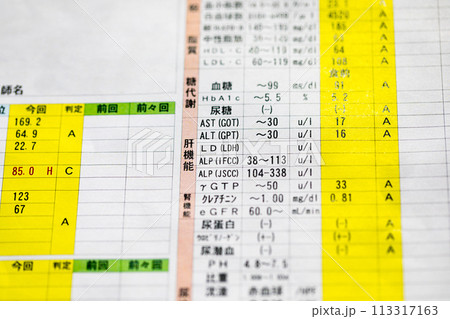 脂質
中性脂肪
HDL-C 60～119 mg/dl 64 A
LDL-C 60～119 mg/dl 108 A
食前
糖代謝
血糖 ～99 mg/dl A
HbA1c ～5.5 % 5.2
尿糖 (-) (-) A
師名
今回 判定 前回 前々回
169.2
64.9 A
22.7
85.0 H C
123
67
A
今回 判定 前回 前々回
肝機能
AST(GOT) ～30 u/l 17 A
ALT(GPT) ～30 u/l 16 A
LD(LDH) u/l
ALP(IFCC) 38～113 u/l
ALP(JSCC) 104-338 u/l
γGTP ～50 u/l 33 A
腎機能
クレアチニン ～1.00 mg/dl 0.81 A
eGFR 60.0～ mL/min
尿蛋白 (-) (-) A
ウロビリノーゲン (+-) (+-) A
尿潜血 (-) (-) A
PH
比重
尿
沈渣 赤血球 /HPF
113317163